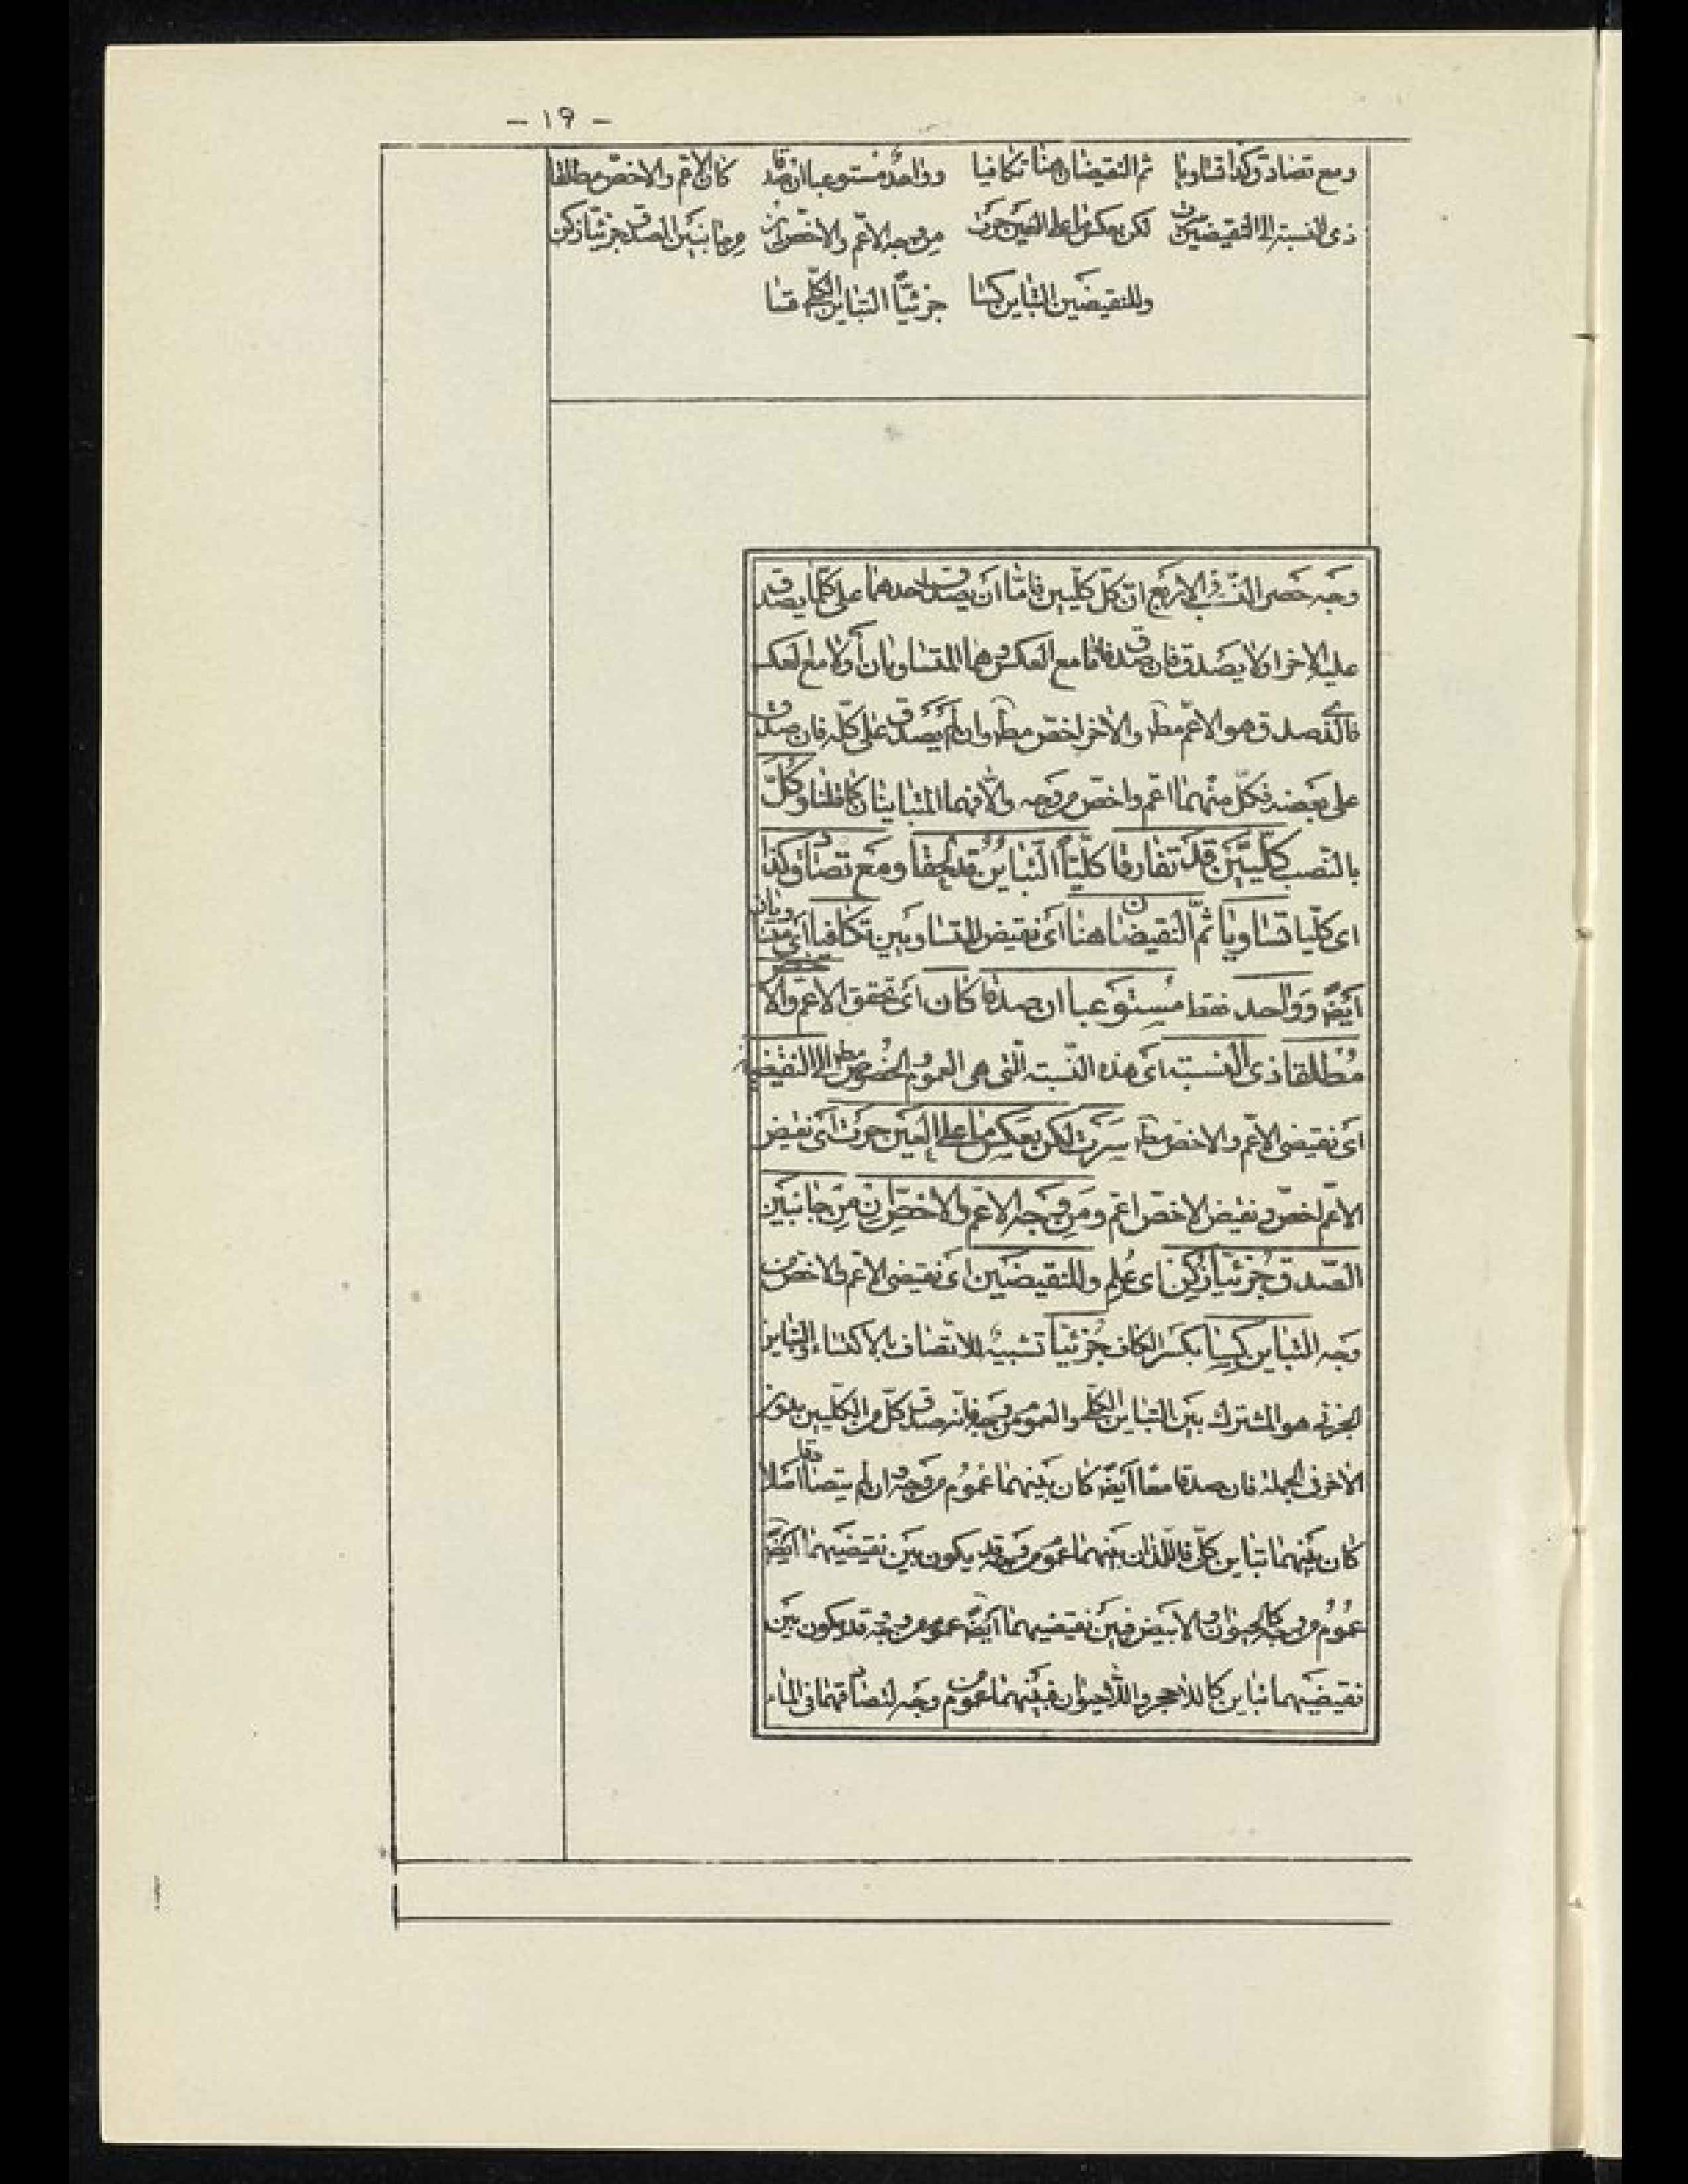 - ۱۹ -
ومع تصادق وكذا تساويا ثم النقيضان هنا تكافيا وواحد مستوعبا ان صدقا كان الاعم والاخص مطلقا
ذى النسبة الى النقيضين سرت لكن بعكس ما على العين جرت من وجه الاعم والاخص ان من جانبين الصدق جزئيا زكن
وللنقيضين التباين كسا جزئيا التباين الكلى قسا
وجه حصر النسب فى الاربع ان كل كليين فاما ان يصدق احدهما على كل ما يصدق
عليه الاخر او لا يصدق فان صدق فاما مع العكس وهما المتساويان أو لا مع العكس
فالذى صدق هو الاعم مط والاخر اخص مط وان لم يصدق على كله فان صدق
على بعضه فكل منهما اعم واخص من وجه والا فهما المتباينان كما قلنا وكل
بالنصب كليين قد تفارقا كليا التباين قد لحقا ومع تصادق وكذا
اى كليا تساويا ثم النقيضان هنا اى نقيض المتساويين تكافيا اى متساويان
ايض وواحد فقط مستوعبا ان صدقا كان اى تحقق الاعم والاخص
مطلقا ذى النسبة اى هذه النسبة التى هى العموم والخصوص مط الى النقيضين
اى نقيضى الاعم والاخص مط سرت لكن بعكس ما على العين جرت اى نقيض
الاعم اخص ونقيض الاخص اعم ومن وجه الاعم والاخص ان من جانبين
الصدق جزئيا زكن اى علم وللنقيضين اى نقيضى الاعم والاخص من
وجه التباين كسا بكسر الكاف جزئيا تشبيه للاتصاف بالاكتساء والتباين
الجزئى هو المشترك بين التباين الكلى والعموم من وجه فانه صدق كل من الكليين بدون
الاخر فى الجملة فان صدقا معا ايض كان بينهما عموم من وجه وان لم يتصادقا اصلا
كان بينهما تباين كلى فاللذان بينهما عموم من وجه قد يكون بين نقيضيهما ايض
عموم من وجه كالحيوان والابيض فبين نقيضيهما ايض عموم من وجه وقد يكون بين
نقيضيهما تباين كاللاحجر واللاحيوان فبينهما عموم من وجه لتصادقهما فى الماء